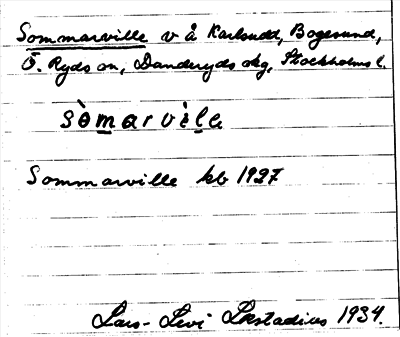 Sommarville v å Karlsudd, Bogesund,
Ö. Ryds sn, Danderyds skg, Stockholms l.
sòmarvìle
Sommarville kb 1927
Lars-Levi Læstadius 1934.